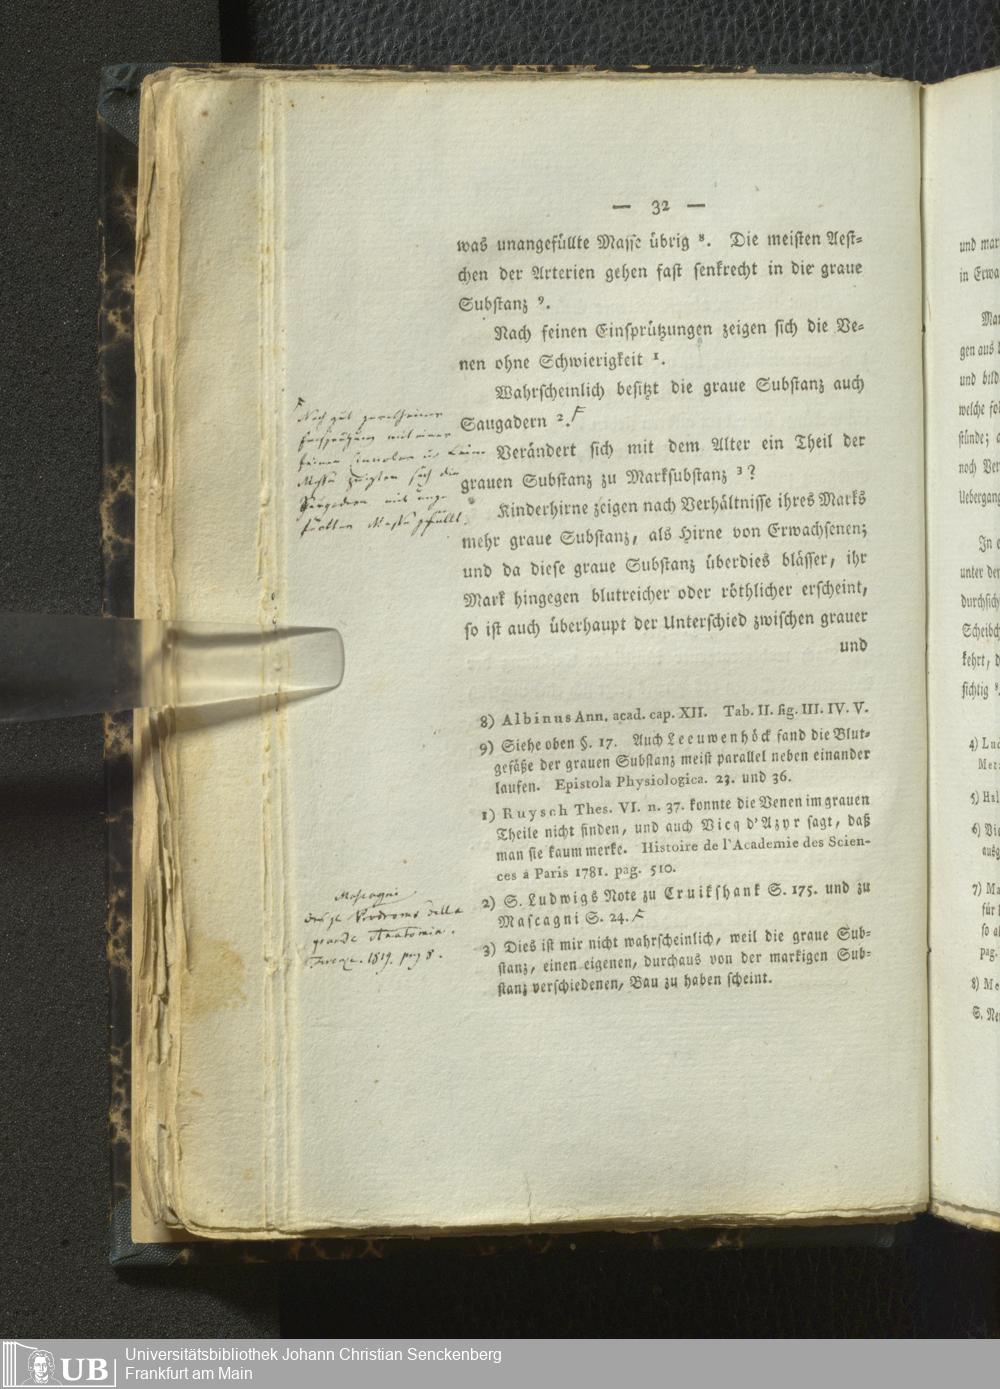 — 32 —
was unangefüllte Masse übrig ⁸. Die meisten Aest-
chen der Arterien gehen fast senkrecht in die graue
Substanz ⁹.
Nach feinen Einsprützungen zeigen sich die Ve-
nen ohne Schwierigkeit ¹.
Wahrscheinlich besitzt die graue Substanz auch
Saugadern ². F
Verändert sich mit dem Alter ein Theil der
grauen Substanz zu Marksubstanz ³?
Kinderhirne zeigen nach Verhältnisse ihres Marks
mehr graue Substanz, als Hirne von Erwachsenen;
und da diese graue Substanz überdies blässer, ihr
Mark hingegen blutreicher oder röthlicher erscheint,
so ist auch überhaupt der Unterschied zwischen grauer
und
F
Noch gut
mit einer
feinen
Masse zeigten sich die
Saugadern mit
Masse gefüllt.
8) Albinus Ann. acad. cap. XII. Tab. II. fig. III. IV. V.
9) Siehe oben §. 17. Auch Leeuwenhöck fand die Blut-
gefäße der grauen Substanz meist parallel neben einander
laufen. Epistola Physiologica. 23. und 36.
1) Ruysch Thes. VI. n. 37. konnte die Venen im grauen
Theile nicht finden, und auch Vicq d'Azyr sagt, daß
man sie kaum merke. Histoire de l'Academie des Scien-
ces à Paris 1781. pag. 510.
2) S. Ludwigs Note zu Cruikshank S. 175. und zu
Mascagni S. 24. F
3) Dies ist mir nicht wahrscheinlich, weil die graue Sub-
stanz, einen eigenen, durchaus von der markigen Sub-
stanz verschiedenen, Bau zu haben scheint.
Mascagni
Prodromo della
grande Anatomia.
Firenze. 1819. pag 8.
und mar
in Erwa
Mar
gen aus
und bild
welche fol
stünde; a
noch Ver
Uebergang
In e
unter der
durchsich
Scheibch
kehrt, d
sichtig ⁸.
4) Lud
Met
5) Hal
6) Vic
ausg
7) Ma
für
so al
pag.
8) Me
S. Ne
UB
Universitätsbibliothek Johann Christian Senckenberg
Frankfurt am Main